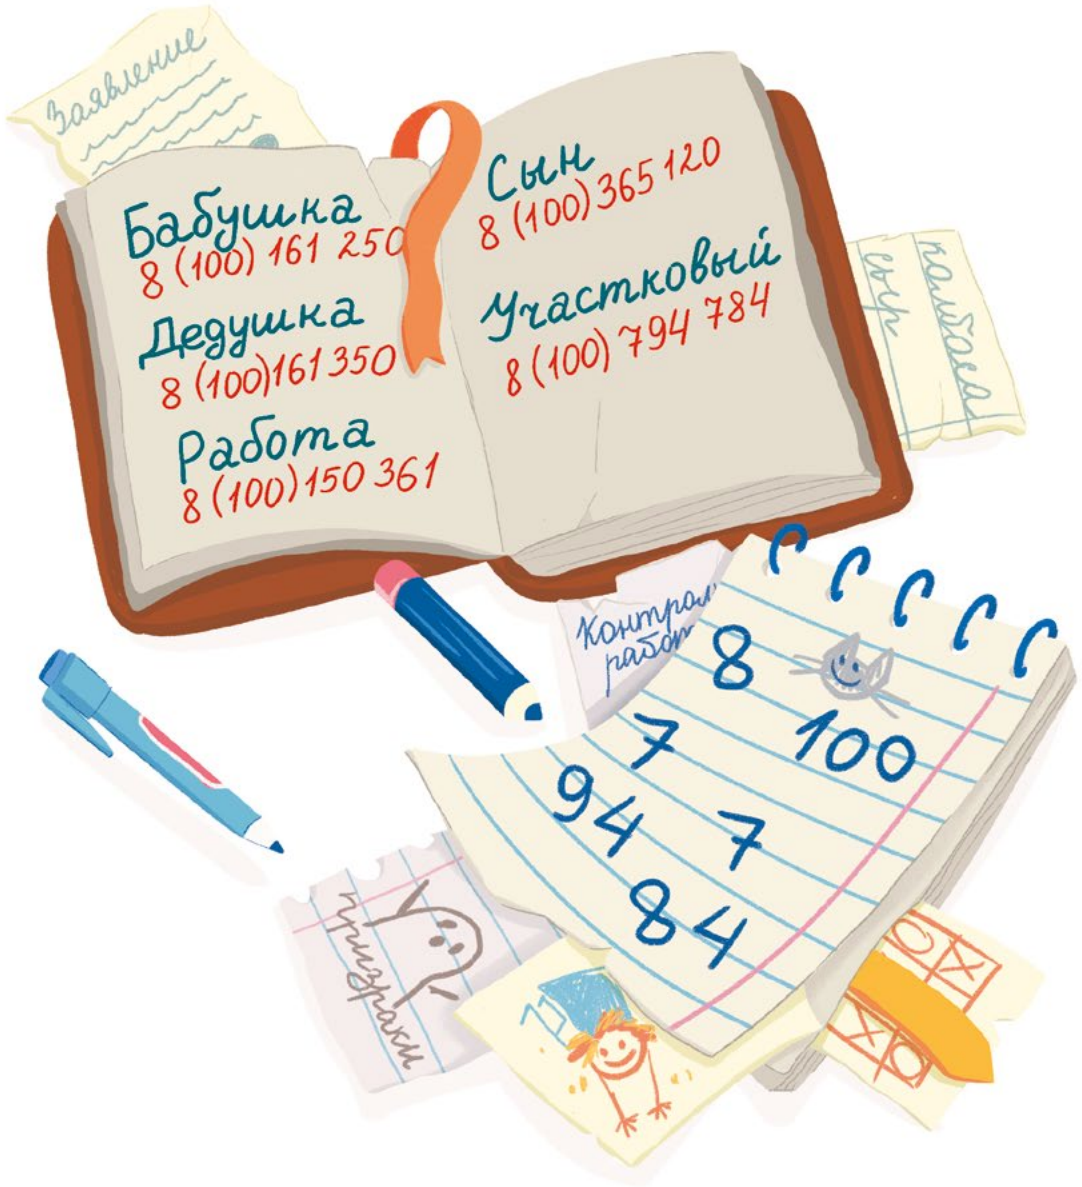 Заявление
Бабушка
8 (100) 161 250
Дедушка
8 (100) 161 350
Работа
8 (100) 150 361
Сын
8 (100) 365 120
Участковый
8 (100) 794 784
калбаса
сыр
Контрол
работ
8
100
7
94 7
84
призраки